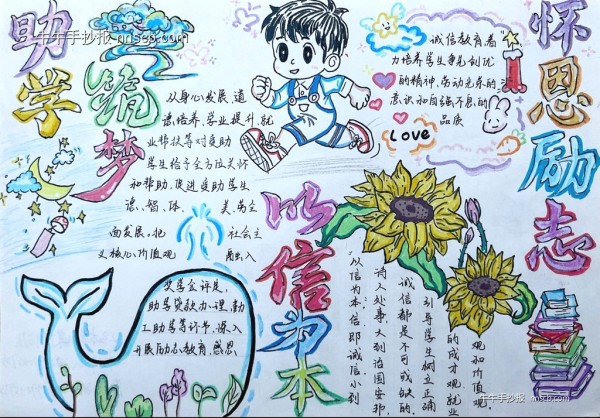 牛牛手抄报 nnscb.com
助学
筑梦
从身心发展、道
德培养、学业提升、就
业帮扶等对受助
学生给予全方位关怀
和帮助,促进受助学生
德、智、体、美、劳全
面发展。把 社会主
义核心价值观 融入
奖学金评定,
助学贷款办理,勤
工助学等环节,深入
开展励志教育、感恩
诚信教育着
力培养学生争先创优
的精神,劳动光荣的
意识和自强不息的
品质
Love
怀恩励志
以信为本
"以信为本"信即诚信小到
诗人处事大到治国安邦,
诚信都是不可或缺的
引导学生树立正确
的成才观、就业
观和价值观
牛牛手抄报 nnscb.com